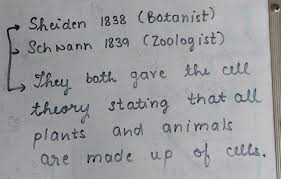 Sheiden 1838 (Botanist)
Schwann 1839 (Zoologist)
They both gave the cell
theory stating that all
plants and animals
are made up of cells.